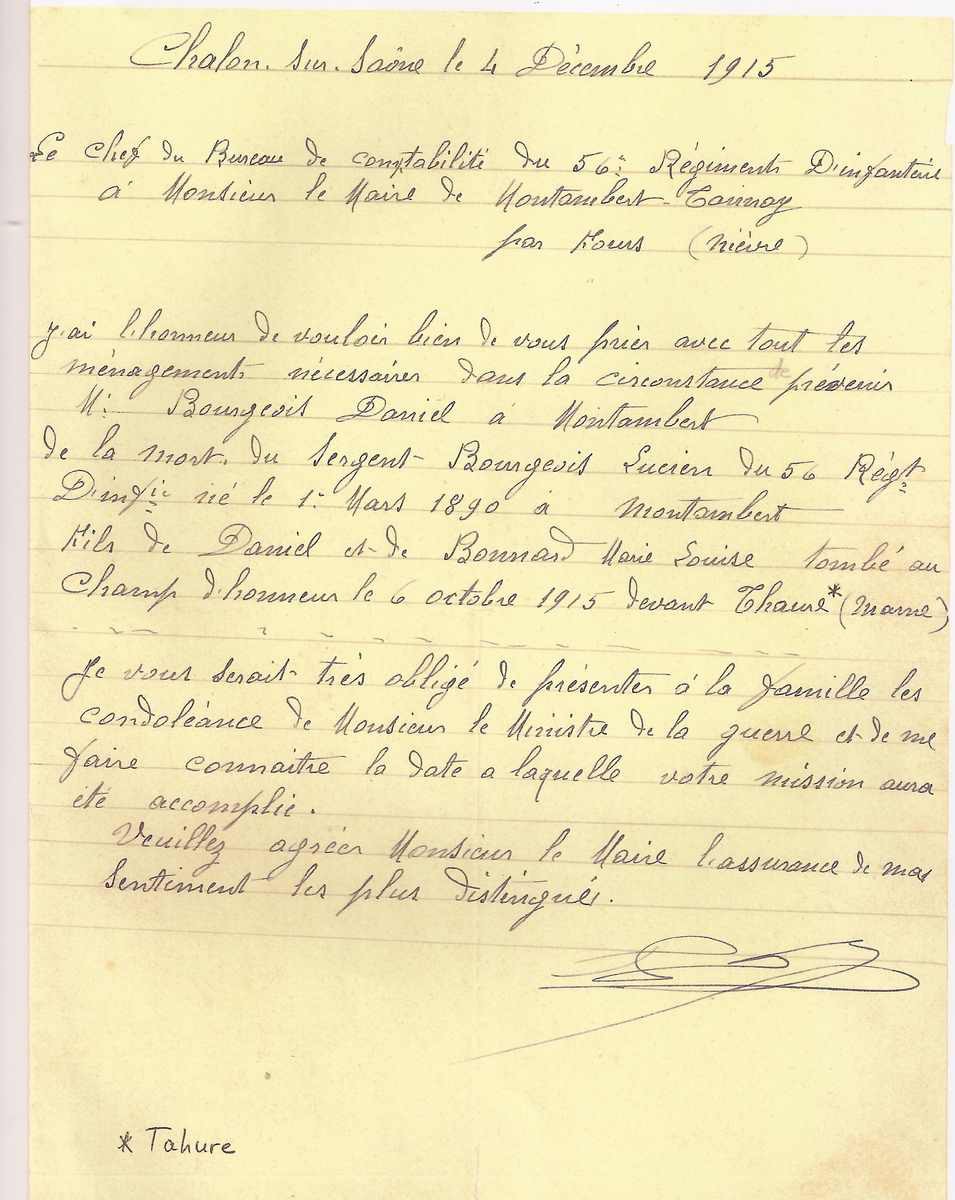 Chalon. sur. Saône le 4 Décembre 1915
Le Chef du Bureau de comptabilité du 56e Régiment D'infanterie
à Monsieur le Maire de Montambert-Tannay
par Fours (Nièvre)
J'ai l'honneur de vouloir bien de vous prier avec tout les
ménagements nécessaires dans la circonstance de prévenir
Mr Bourgeois Daniel à Montambert
de la mort du Sergent Bourgeois Lucien du 56 Régt
D'infie né le 1er Mars 1890 à Montambert
Fils de Daniel et de Bonnard Marie Louise tombé au
Champ d'honneur le 6 octobre 1915 devant Thaure* (Marne)
Je vous serait très obligé de présenter à la famille les
condoléance de Monsieur le Ministre de la guerre et de me
faire connaitre la date a laquelle votre mission aura
été accomplie.
Veuillez agréer Monsieur le Maire l'assurance de mes
Sentiment les plus distingués.
* Tahure